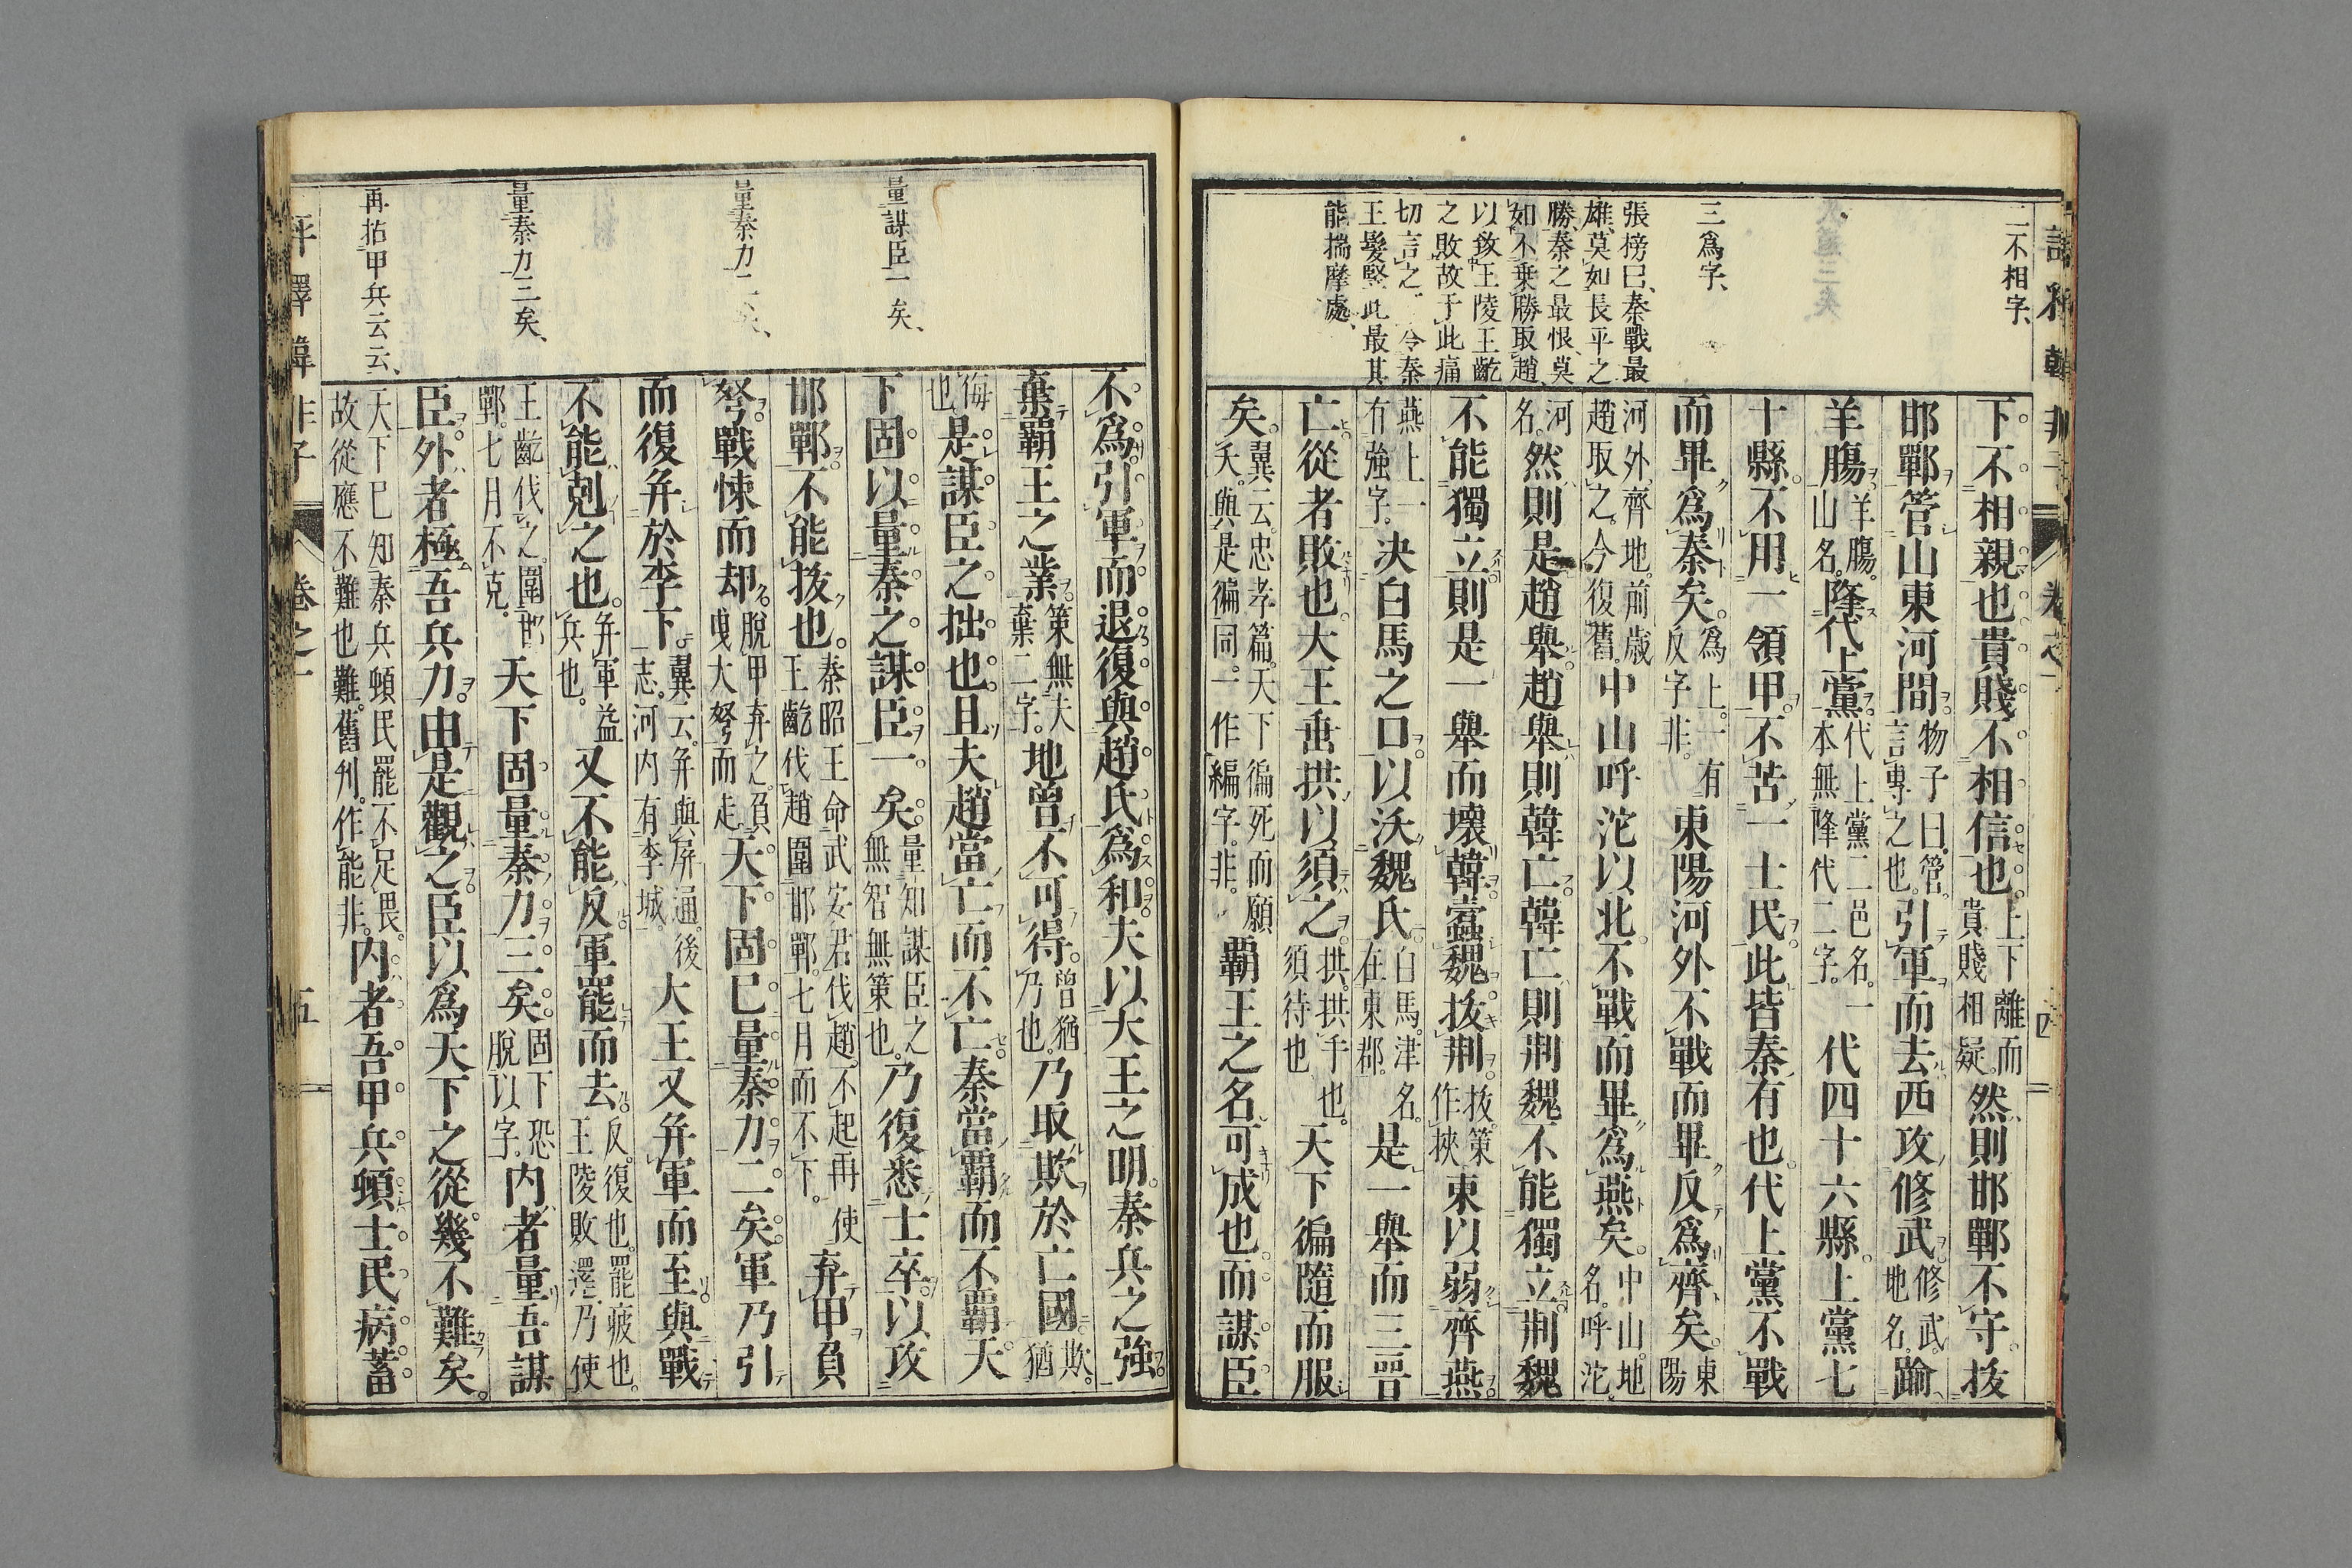 二不相字、
三爲字、
張榜曰、秦戰最
雄、莫如長平之
勝、秦之最恨、莫
如不乗勝取趙、
以致王陵王齕
之敗故于此痛
切言之、令秦
王髮竪此最其
能揣摩處、
下不相親也貴賤不相信也。上下離而貴賤相疑。然則邯鄲不守。拔
邯鄲管山東河間。物子曰、管。言專之也。引軍而去西攻修武。修武。地名。踰
羊膓。羊膓。山名。隆代上黨。代上黨二邑名。一本無隆代二字。代四十六縣。上黨七
十縣。不用一領甲。不苦一士民。此皆秦有也。代上黨不戰
而畢爲秦矣。爲上。一有反字非。東陽河外不戰而畢反爲齊矣。東陽
河外。齊地。前歳趙取之。今復舊。中山呼沱以北。不戰而畢爲燕矣。中山。地名。呼沱。
河名。然則是趙舉。趙舉則韓亡。韓亡則荆魏不能獨立。荆魏
不能獨立。則是一舉而壞韓蠹魏。拔荆。拔。策作挾東以弱齊燕。
燕上一有強字。決白馬之口。以沃魏氏。白馬。津名。在東郡。是一舉而三晉
亡。從者敗也。大王垂拱以須之。拱。拱手也。須待也天下徧隨而服
矣。翼云。忠孝篇。天下徧死而願夭。與是徧同。一作編字。非。覇王之名可成也。而謀臣
評釋韓非子
卷之一
四
不爲引軍而退復與趙氏爲和夫以大王之明。秦兵之強。
棄覇王之業。策無夫棄二字。地曾不可得。曾猶乃也。乃取欺於亡國。欺。猶
侮也是謀臣之拙也。且夫趙當亡而不亡。秦當覇而不覇。天
下固以量秦之謀臣。一矣。量知謀臣之無智無策也。乃復悉士卒以攻
邯鄲。不能拔也。秦昭王命武安君伐趙。不起再使王齕伐趙圍邯鄲。七月而不下。弃甲負
弩。戰悚而却。脱甲弃之。負曳大弩而走。天下固已量秦力二矣。軍乃引
而復并於李下。翼云。并與屏通。後志。河内有李城。大王又并軍而至。與戰
不能剋之也。并軍益兵也。又不能反軍罷而去。反。復也。罷疲也。王陵敗還、乃使
王齕伐之。圍邯鄲。七月不克。天下固量秦力三矣。固下恐脱以字。内者量吾謀
臣。外者極吾兵力。由是觀之。臣以爲天下之從。幾不難矣。
天下已知秦兵頓民罷不足畏。故從應不難也難。舊刋。作能非。内者吾甲兵頓。士民病。蓄
量謀臣一矣、
量秦力二矣、
量秦力三矣、
再拈甲兵云云、
評釋韓非子
卷之一
五